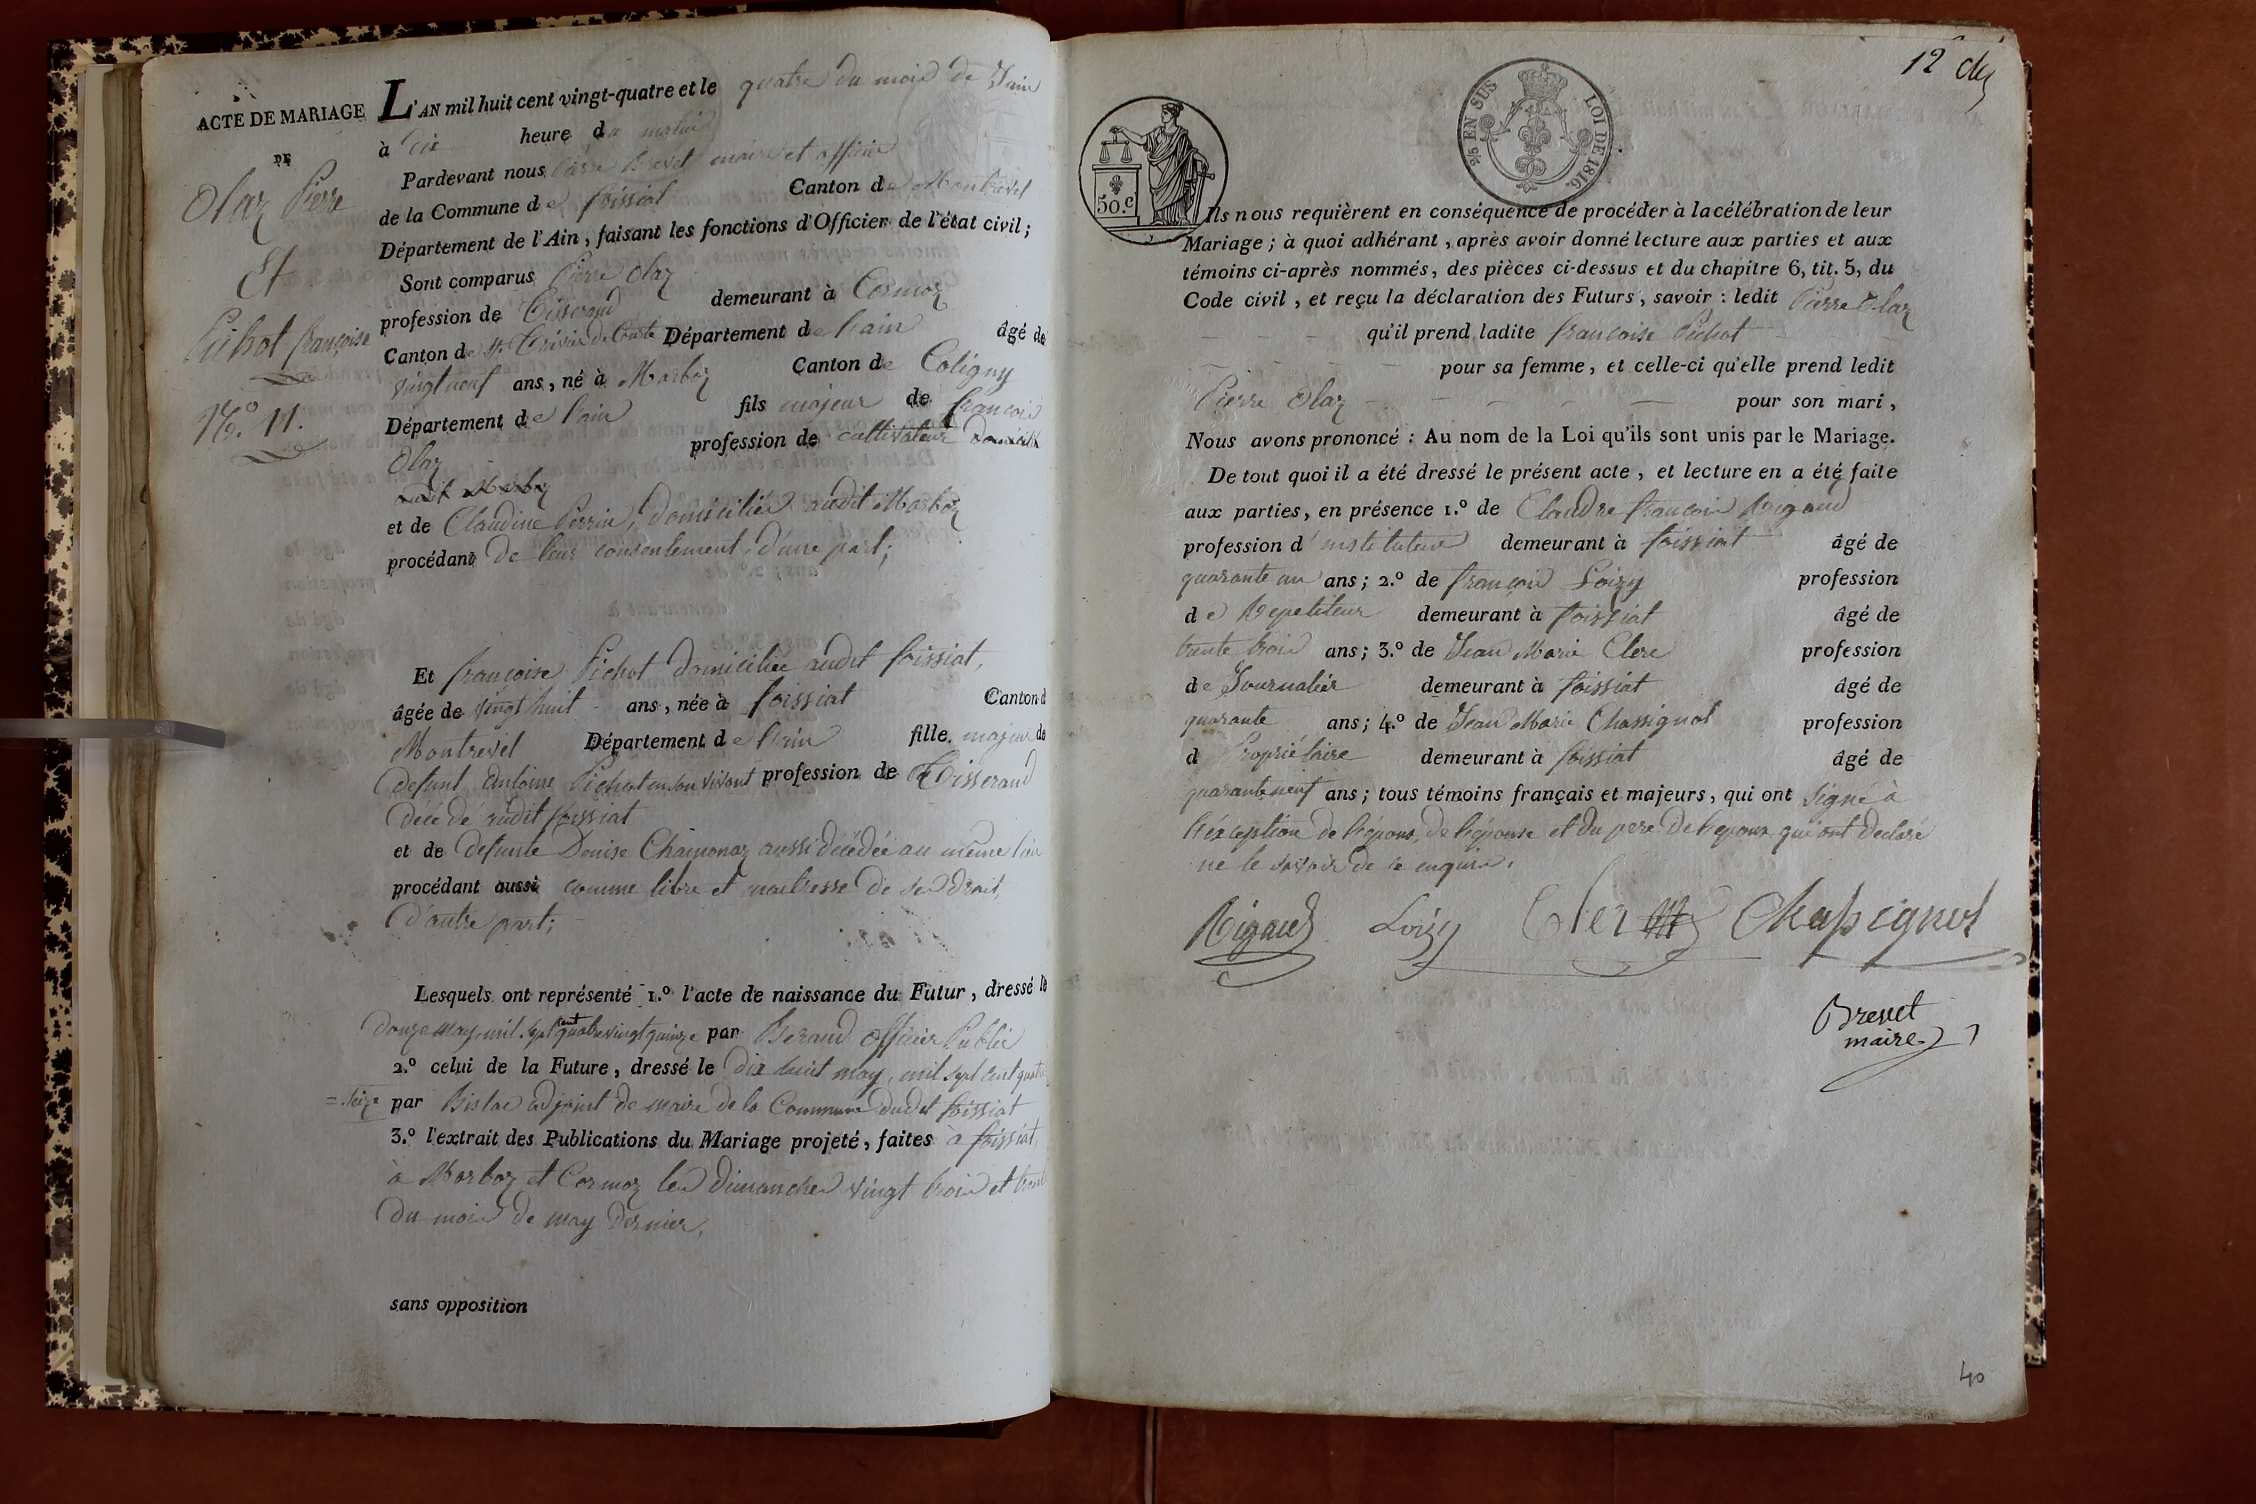 ACTE DE MARIAGE
DE
Olaz Pierre
Et
Pichot françoise
N.º 11.
L'AN mil huit cent vingt-quatre et le quatre du mois de Juin
à dix heure du matin
Pardevant nous Pierre Brevet maire et officier
de la Commune de foissiat Canton de Montrevel
Département de l'Ain, faisant les fonctions d'Officier de l'état civil;
Sont comparus Pierre Olaz
profession de Tisserand demeurant à Cormoz
Canton de St. Trivier de Courte Département de l'ain âgé de
vingt neuf ans, né à Marboz Canton de Coligny
Département de l'ain fils majeur de françois
Olaz profession de cultivateur domicilié
audit Marboz
et de Claudine Perrin, domiciliés audit Marboz
procédant de leur consentement, d'une part;
Et françoise Pichot domiciliée audit foissiat,
âgée de vingt huit ans, née à foissiat Canton d
Montrevel Département de l'ain fille majeur de
défunt Antoine Pichot en son vivant profession de Tisserand
décédé audit foissiat
et de defunte Denise Chamonaz aussi décédée au même lieu
procédant aussi comme libre et maitresse de ses droits,
d'autre part;
Lesquels ont représenté 1.º l'acte de naissance du Futur, dressé le
douze may, mil sept cent quatre vingt quinze par Beraud officier Public
2.º celui de la Future, dressé le dix huit may, mil sept cent quatre
= seize par adjoint de maire de la Commune dudit foissiat
3.º l'extrait des Publications du Mariage projeté, faites à foissiat,
à Marboz et Cormoz les dimanches vingt trois et trente
du mois de may dernier.
sans opposition
12 
2/5 EN SUS LOI DE 1816.
50.c
Ils nous requièrent en conséquence de procéder à la célébration de leur
Mariage; à quoi adhérant, après avoir donné lecture aux parties et aux
témoins ci-après nommés, des pièces ci-dessus et du chapitre 6, tit. 5, du
Code civil, et reçu la déclaration des Futurs, savoir : ledit Pierre Olaz
qu'il prend ladite françoise Pichot
pour sa femme, et celle-ci qu'elle prend ledit
Pierre Olaz pour son mari,
Nous avons prononcé : Au nom de la Loi qu'ils sont unis par le Mariage.
De tout quoi il a été dressé le présent acte, et lecture en a été faite
aux parties, en présence 1.º de Claudre françois Rigaud
profession d'instituteur demeurant à foissiat âgé de
quarante un ans; 2.º de françois Loizy profession
de Repetiteur demeurant à foissiat âgé de
trente trois ans; 3.º de Jean Marie Clere profession
de Journalier demeurant à foissiat âgé de
quarante ans; 4.º de Jean Marie Chassignol profession
d Propriétaire demeurant à foissiat âgé de
quarante neuf ans; tous témoins français et majeurs, qui ont signé à
l'éxception de l'époux, de l'épouse et du pere de l'epoux qui ont declaré
ne le savoir de ce enquis.
Rigaud Loizy Cler Chassignol
Brevet
maire
40